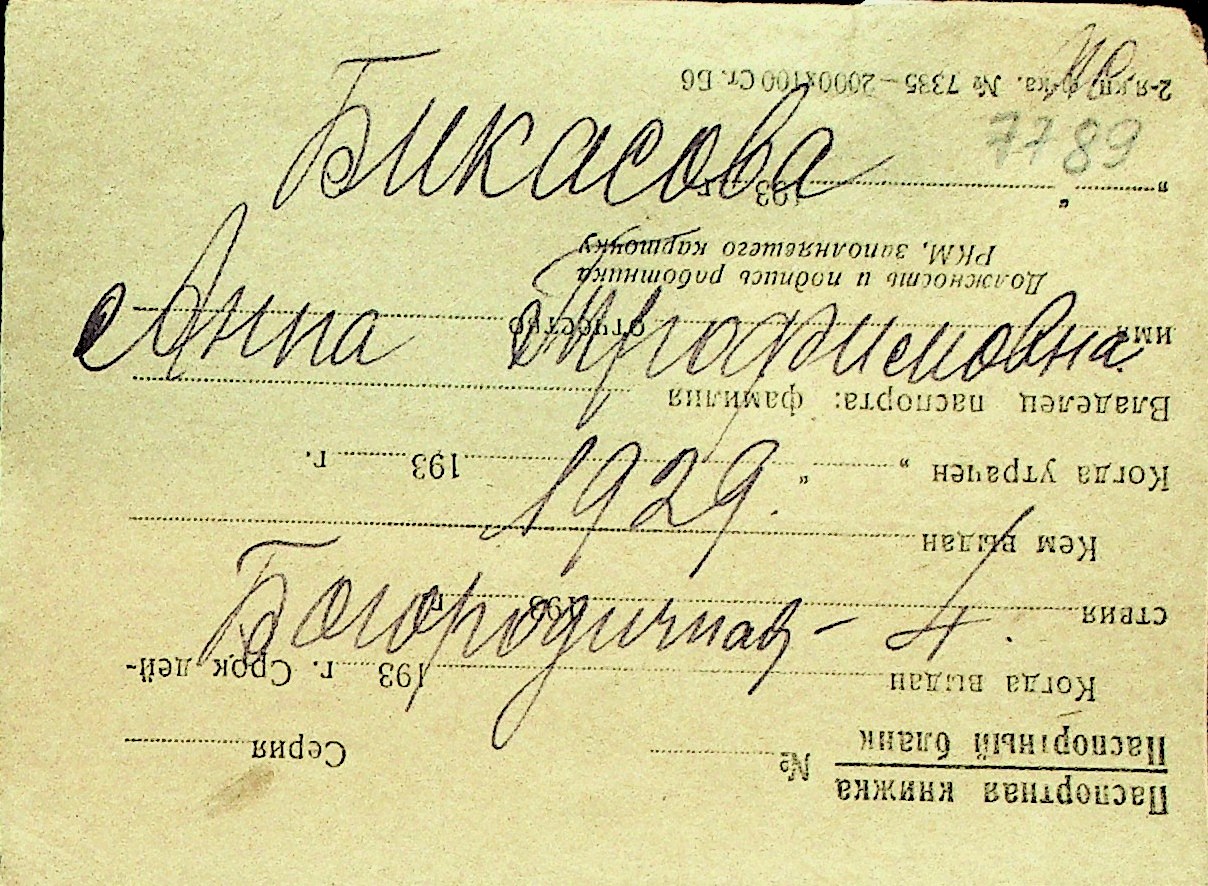 7789
Бикасова
Анна Трофимовна
1929.
Богородичная – 4.
Паспортная книжка
Паспортный бланк № Серия
Когда выдан 193 г. Срок дей-
ствия 193 г.
Кем выдан
Когда утрачен „ “ 193 г.
Владелец паспорта: фамилия
имя отчество
Должность и подпись работника
РКМ, заполнявшего карточку
„ “ 193 г.
2-я кн. ф-ка. № 7335—2000х100 Ст. Бб